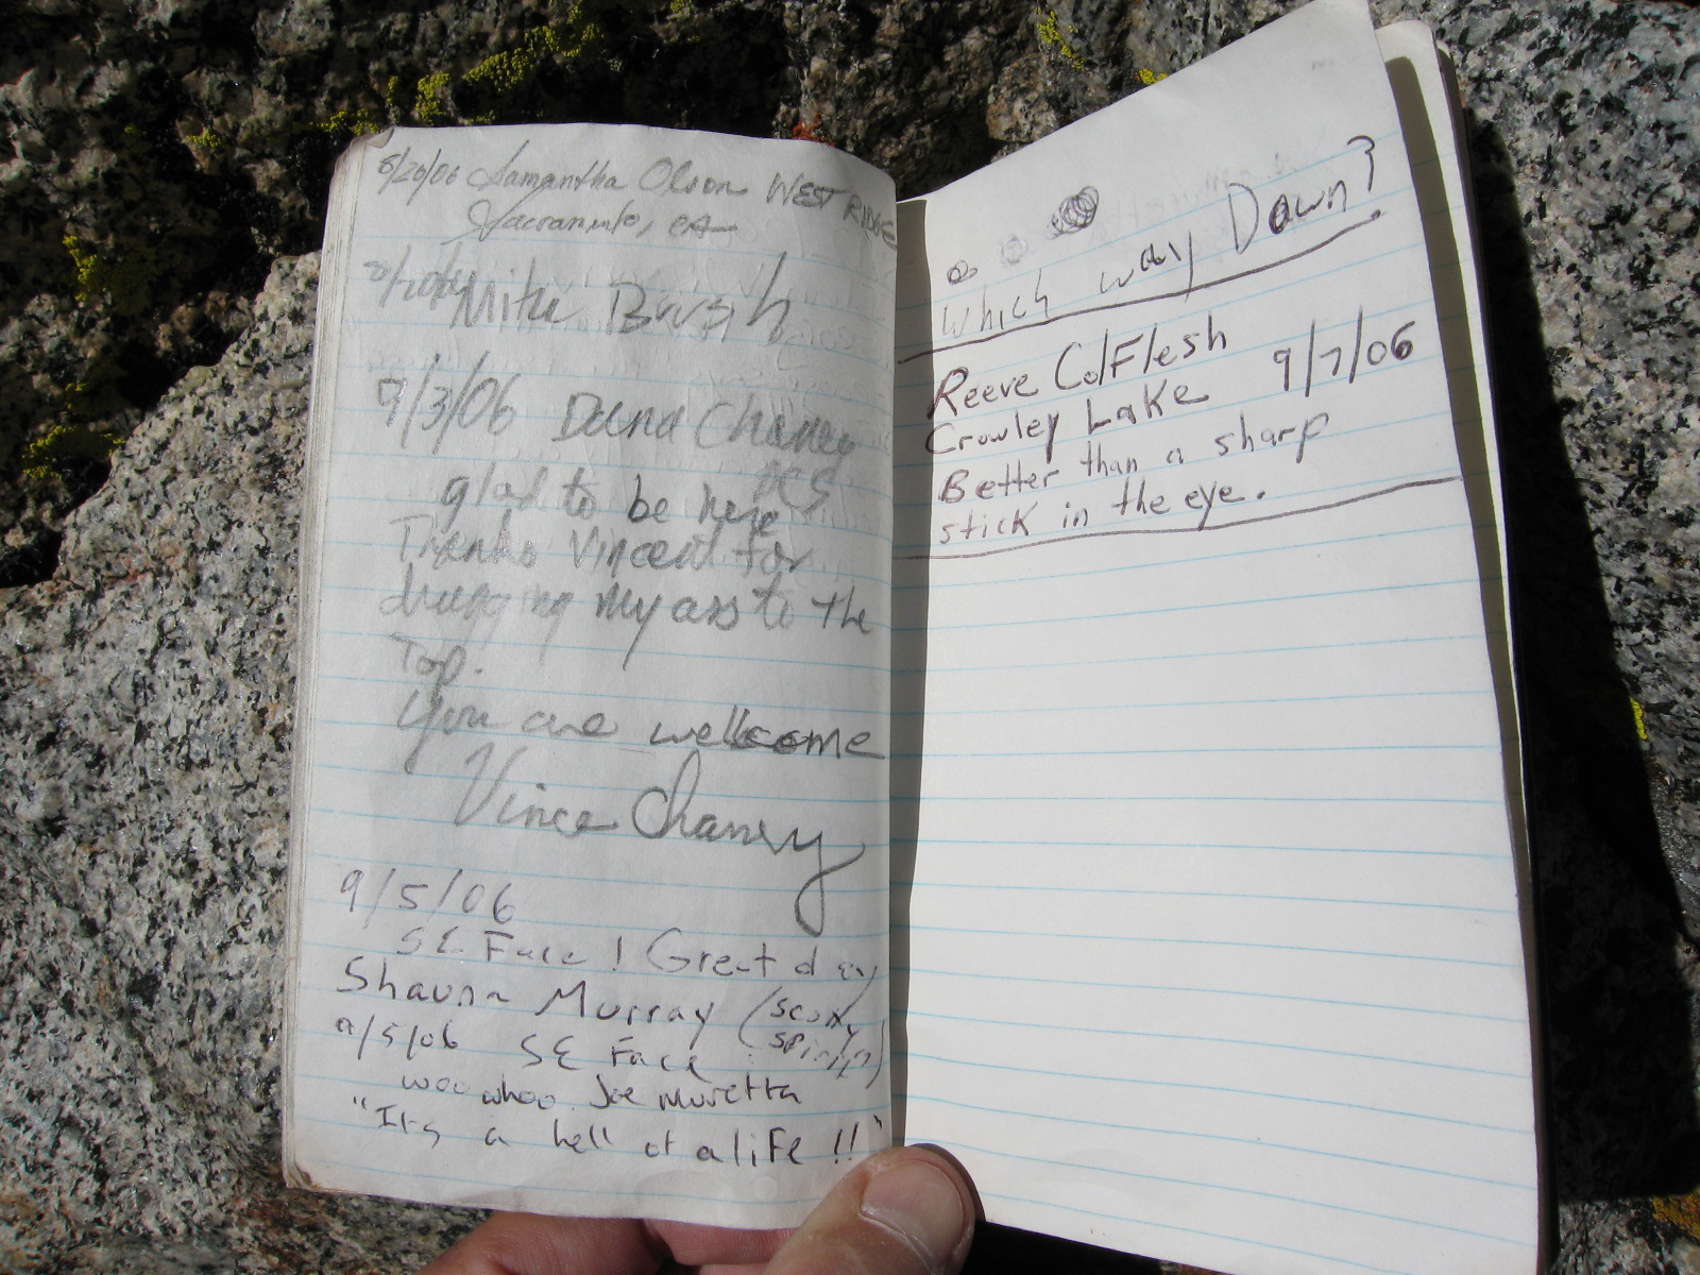 8/26/06 Samantha Olson WEST RIDGE
Sacramento, CA
Mike Brush
9/3/06 Dana Chaney
glad to be here
Thanks Vincent for
dragging my ass to the
Top.
You are wellcome
Vince Chaney
9/5/06
SE Face! Great day
Shauna Murray (scurry
9/5/06 SE Face
woo whoo Joe Muretta
"Its a hell of a life!!"
Which way Down?
Reeve ColFlesh
Crowley Lake 9/7/06
Better than a sharp
stick in the eye.